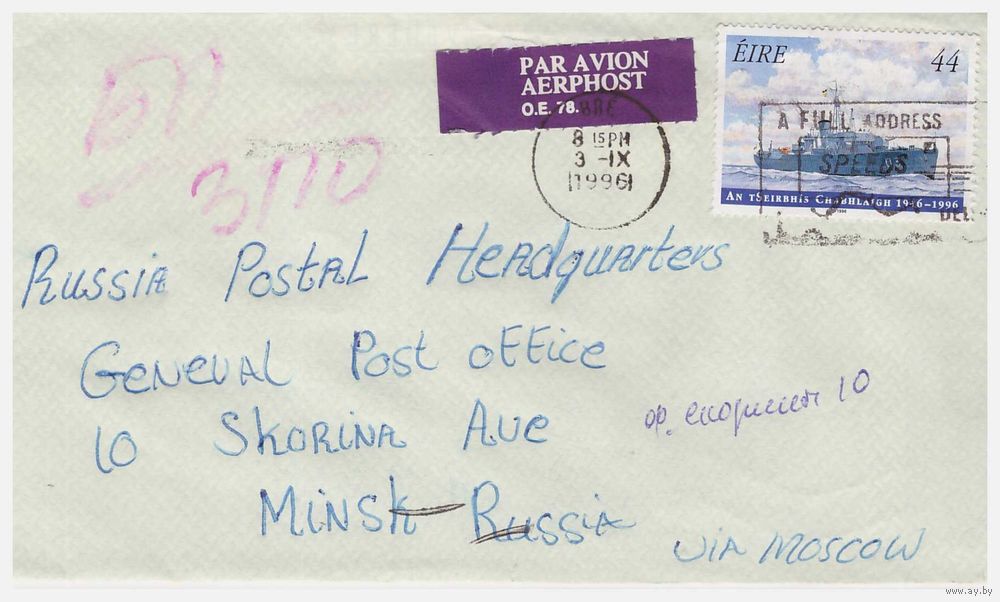 PAR AVION
AERPHOST
O.E. 78.
ÉIRE 44
8 15PM
3 -IX
1996
A FULL ADDRESS
SPEEDS
DEL
AN TSEIRBHÍS CHABHLAIGH 1946–1996
1996
3/10
Russia Postal Headquarters
General Post Office
10 Skorina Ave
Minsk Russia
10
via Moscow
www.ay.by